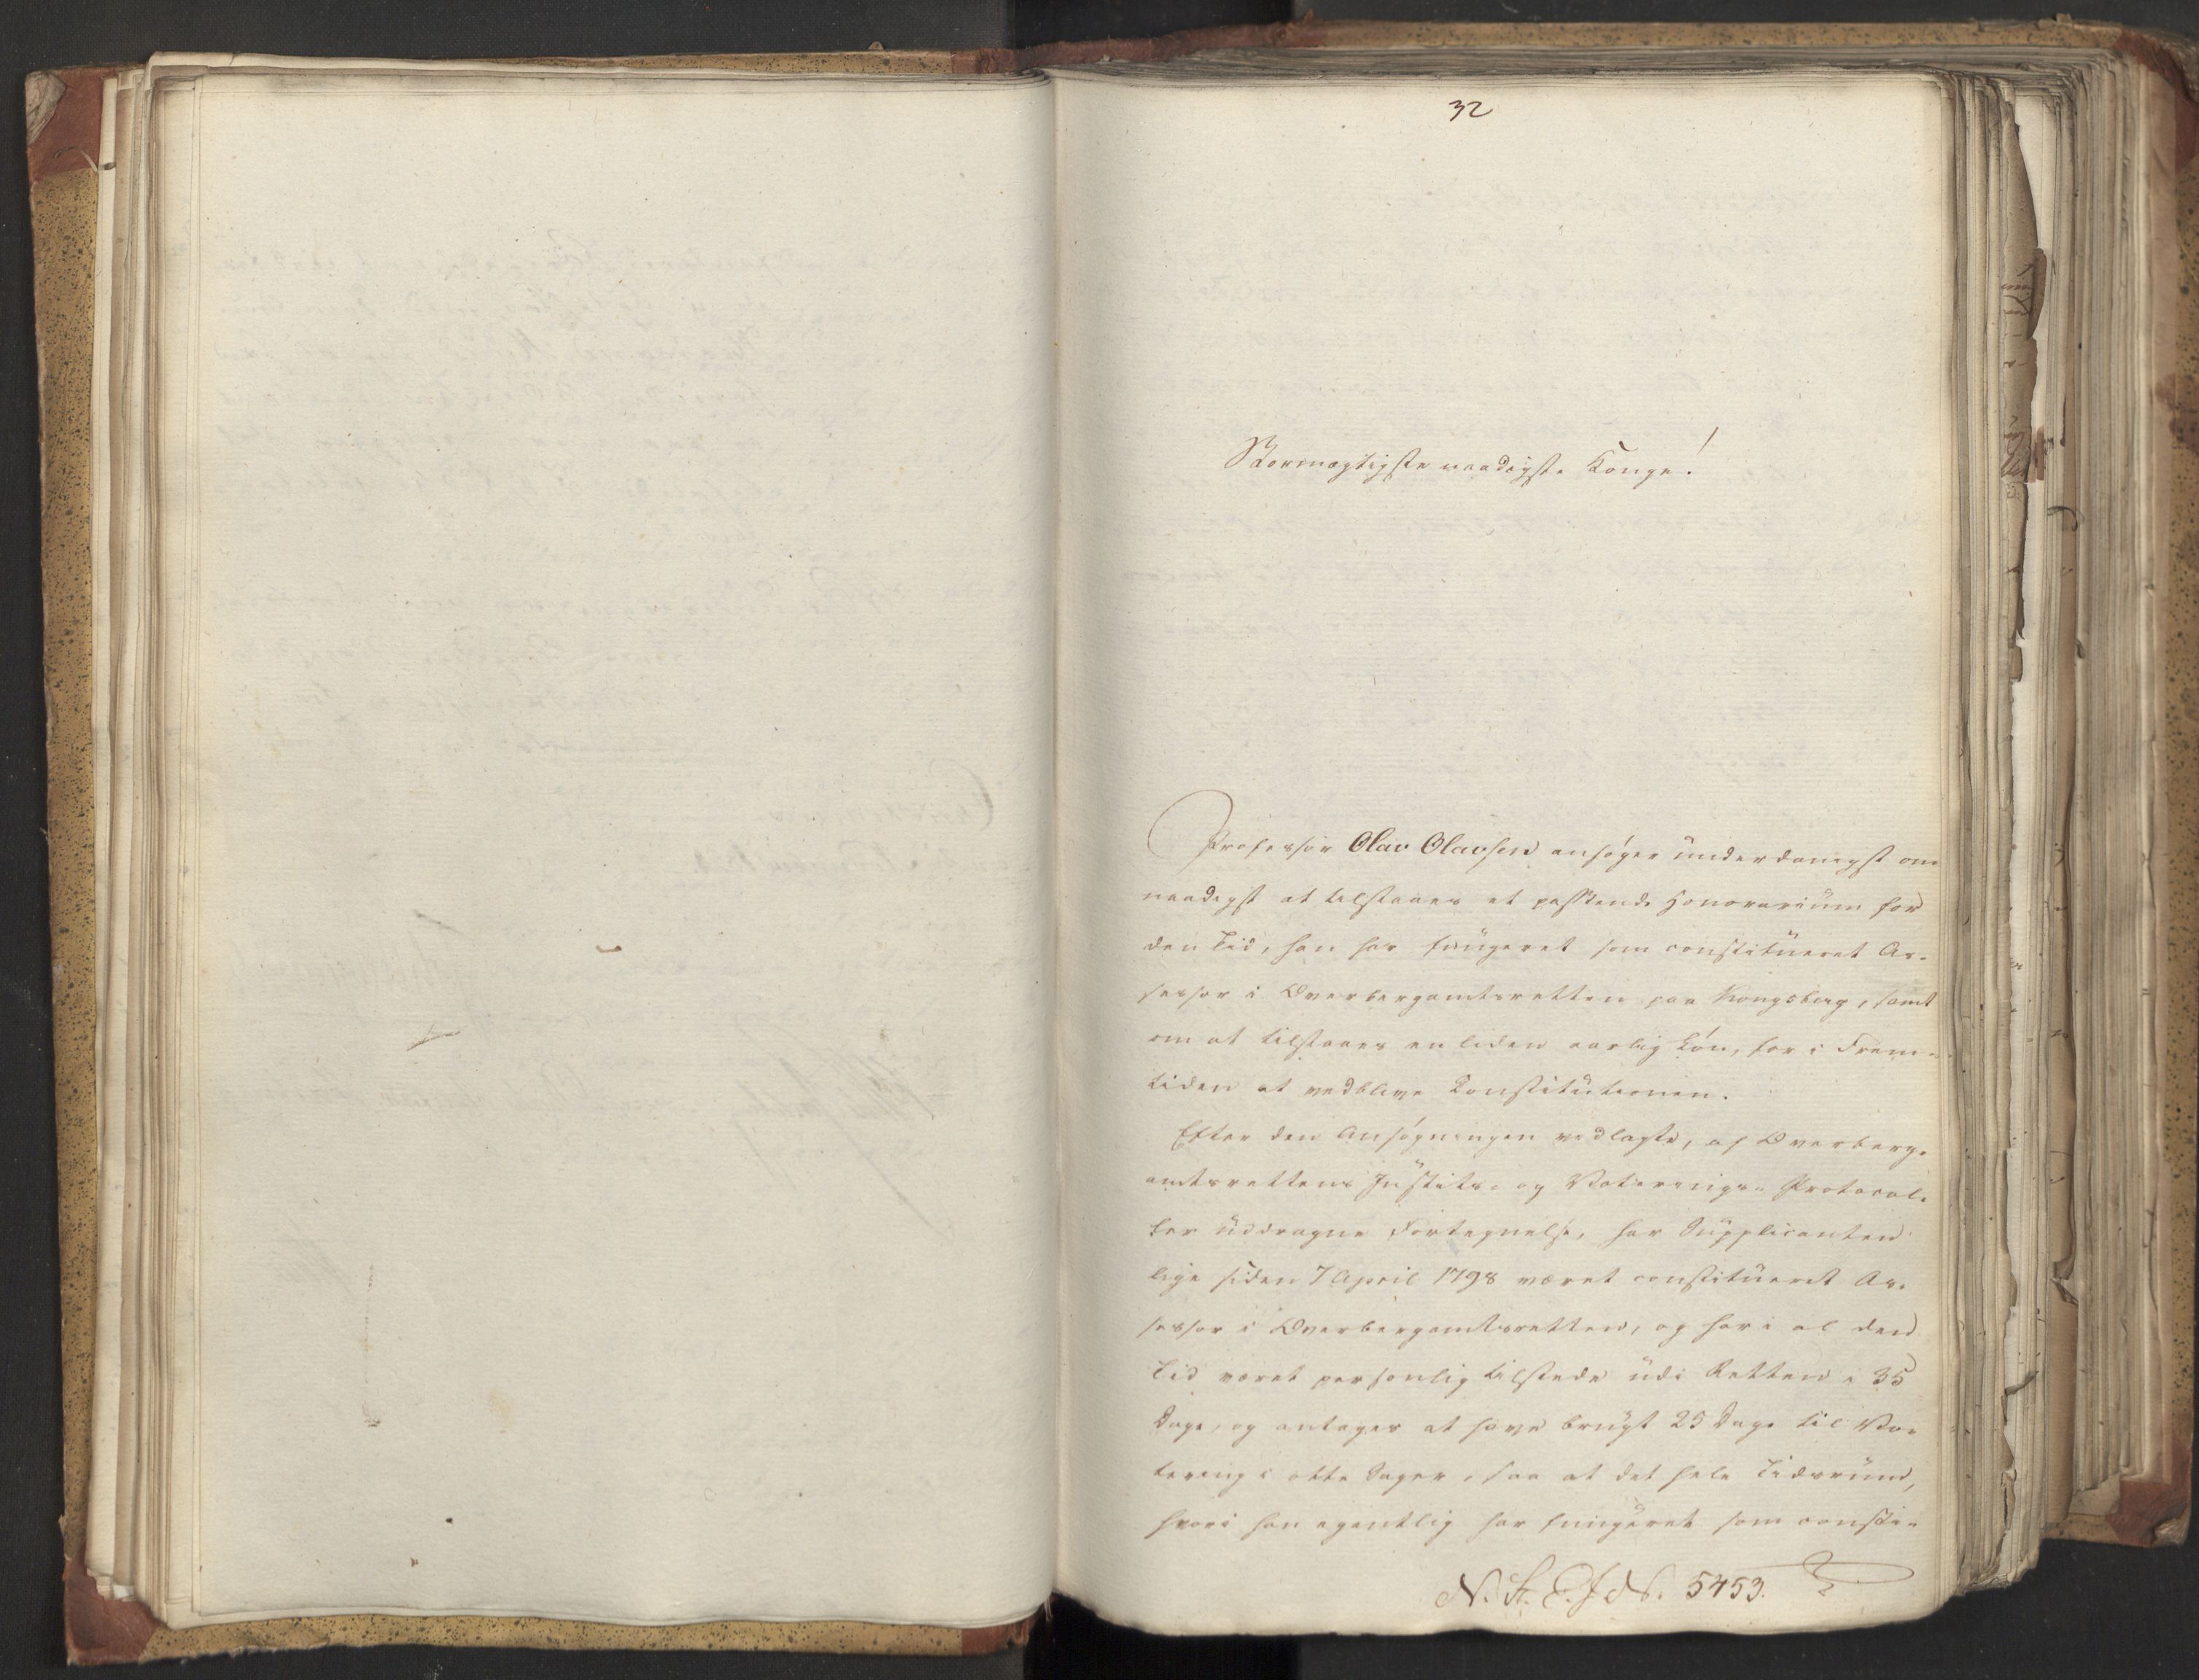 32
Stormægtigste naadigste Konge!
Professor Olav Olavsen ansøger underdanigst om
naadigst at tilstaaes et passende Honorarium for
den Tid, han har fungeret som constitueret As-
sessor i Overbergamtsretten paa Kongsberg, samt
om at tilstaaes en liden aarlig Løn, for i Frem-
tiden at vedblive Constitutionen.
Efter den Ansøgningen vedlagte, af Overberg-
amtsrettens Justits- og Voterings-Protocol-
ler uddragne Fortegnelse, har Supplicanten
lige siden 7 April 1798 været constitueret As-
sessor i Overbergamtsretten, og har i al den
Tid været personlig tilstede udi Retten i 35
Dage, og antager at have brugt 25 Dage til Vo-
tering i otte Sager, saa at det hele Tidsrum,
hvori han egentlig har fungeret som consti-
N. A. E. J. N. 5453.